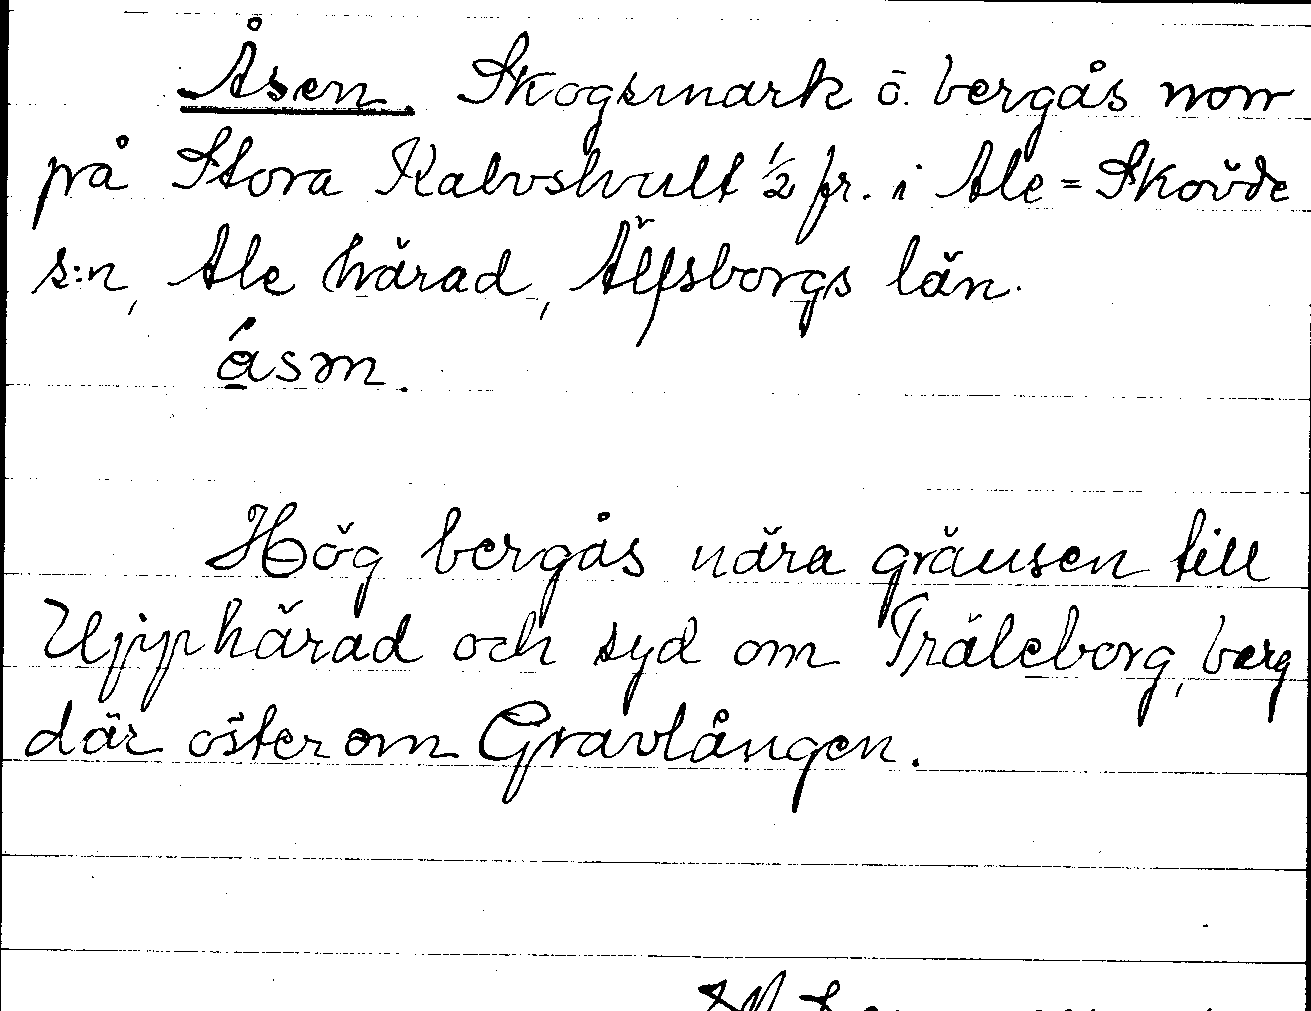 Åsen. Skogsmark o. bergås norr
på Stora Kalvshult 1/2 fr. i Ale=Skövde
s:n, Ale härad, Älfsborgs län.
åsm.
Hög bergås nära gränsen till
Upphärad och syd om Träleborg, berg
där öster om Gravlången.